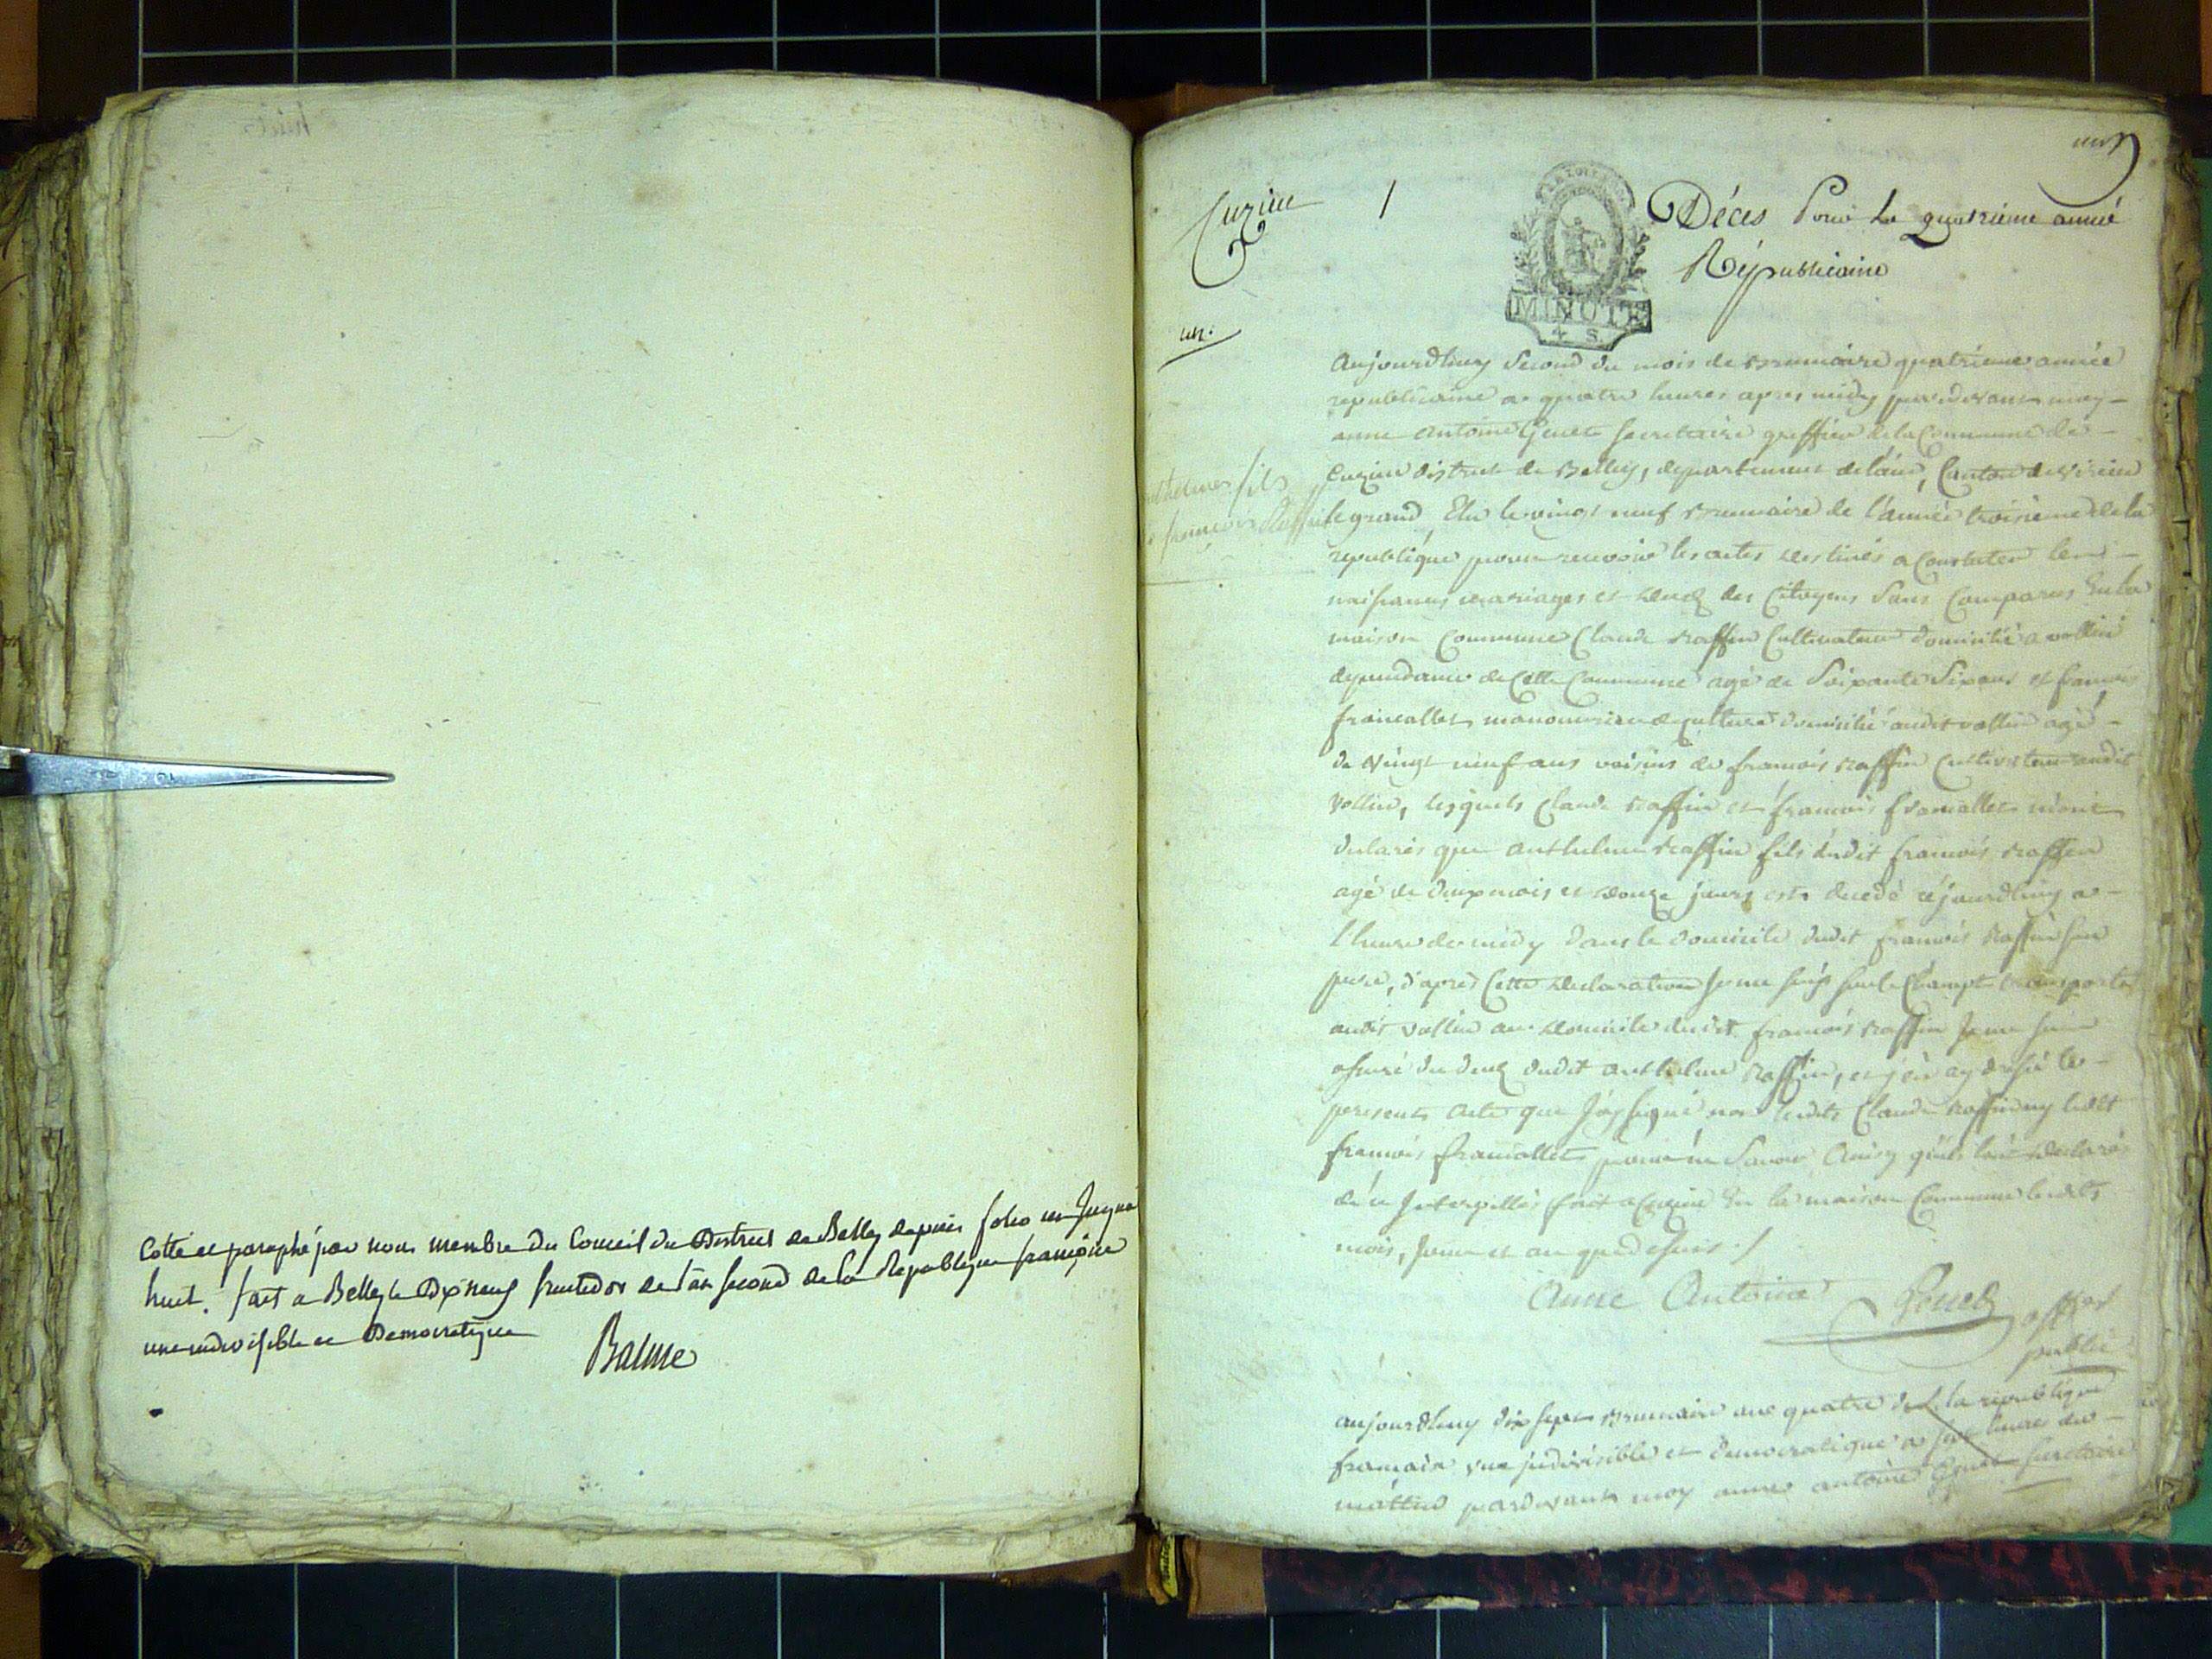 Cotté et paraphé par nous membre du Conseil du District de Belley depuis folio un Jusqua
huit. fait a Belley le Dixneuf fructidor de l'an second de la Republique françoise
une indivisible et Democratique
Balme
Cuzieu
1
Décès Pour La quatrieme année
Républicaine
MINUTE
4 S
un.
anthelmes fils
françois Raffin
Aujourdhuy Second du mois de brumaire quatrieme année
republicaine a quatre heures apres midy pardevant moy
anne antoine Genet secretaire greffier de la Commune de
Cuzieu district de Belley, departement de lain, Canton de virieu
le grand, Elu le vingt neuf brumaire de l'année troisieme de la
republique pour recevoir les actes destinés a Constater les
naissances mariages et decez des Citoyens Sont Comparus En la
maison Commune Claude raffin Cultivateur domicilié a vollien
dependance de Cette Commune agé de Soixante Six ans et francois
francallet manouvrier de culture domicilié audit vollien agé
de vingt neuf ans voisins de francois raffin Cultivateur audit
Vollien, lesquels Claude raffin et francois francallet m'ont
declarés que anthelme raffin fils dudit francois raffin
agé de deux mois et douze jours est decedé cejourdhuy a
l'heure de midy dans le domicile dudit francois Raffin son
pere, d'apres Cette declaration Je me suis sur le Champt transporté
audit vollien au domicile dudit francois raffin Je me suis
assuré du decez dudit anthelme Raffin, et j'en ay dressé le
present acte que J'ay signé non lesdits Claude raffin ny ledit
francois francallet pour ne Savoir Ainsy qu'ils l'ont declaré
de ce Interpellés fait a Cuzieu En la maison Commune lesdits
mois, Jour et an que dessus ./.
Anne Antoine Genet offier
public
aujourdhuy dix sept brumaire an quatre de la republique
francaise une jndivisible et democratique a heures du
mattin pardevant moy anne antoine Genet secretaire